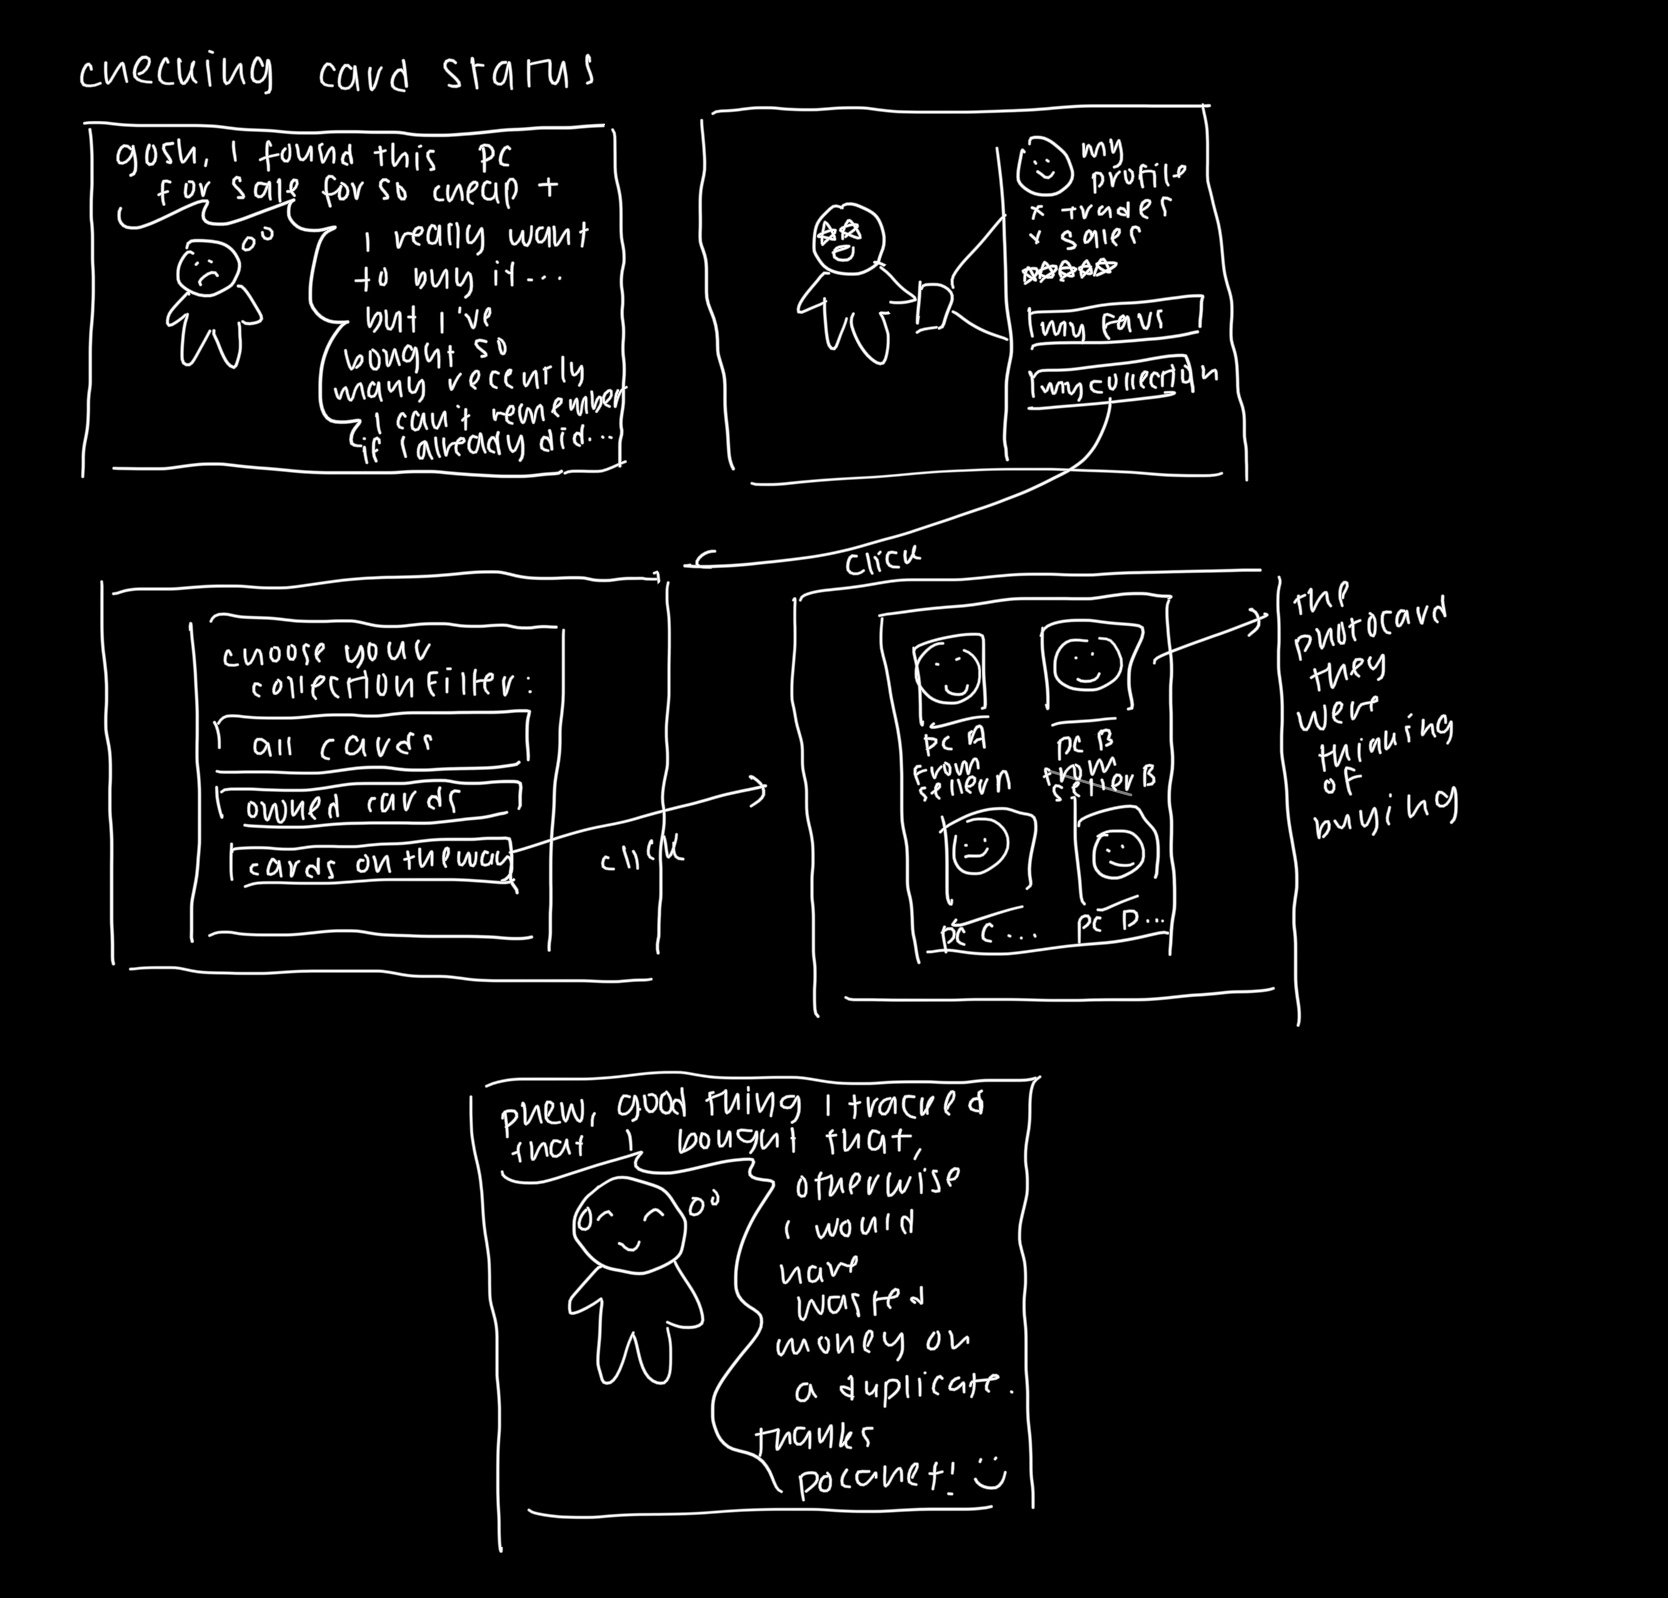 checking card status
gosh, I found this pc
for sale for so cheap +
I really want
to buy it...
but I've
bought so
many recently
I can't remember
if I already did...
my
profile
* trades
* sales
☆☆☆☆☆
my favs
my collection
click
choose your
collection filter:
all cards
owned cards
cards on the way
click
pc A
from
seller A
pc B
from
seller B
pc C...
pc D...
the
photocard
they
were
thinking
of
buying
phew, good thing I tracked
that I bought that,
otherwise
I would
have
wasted
money on
a duplicate.
thanks
pocanet! :)